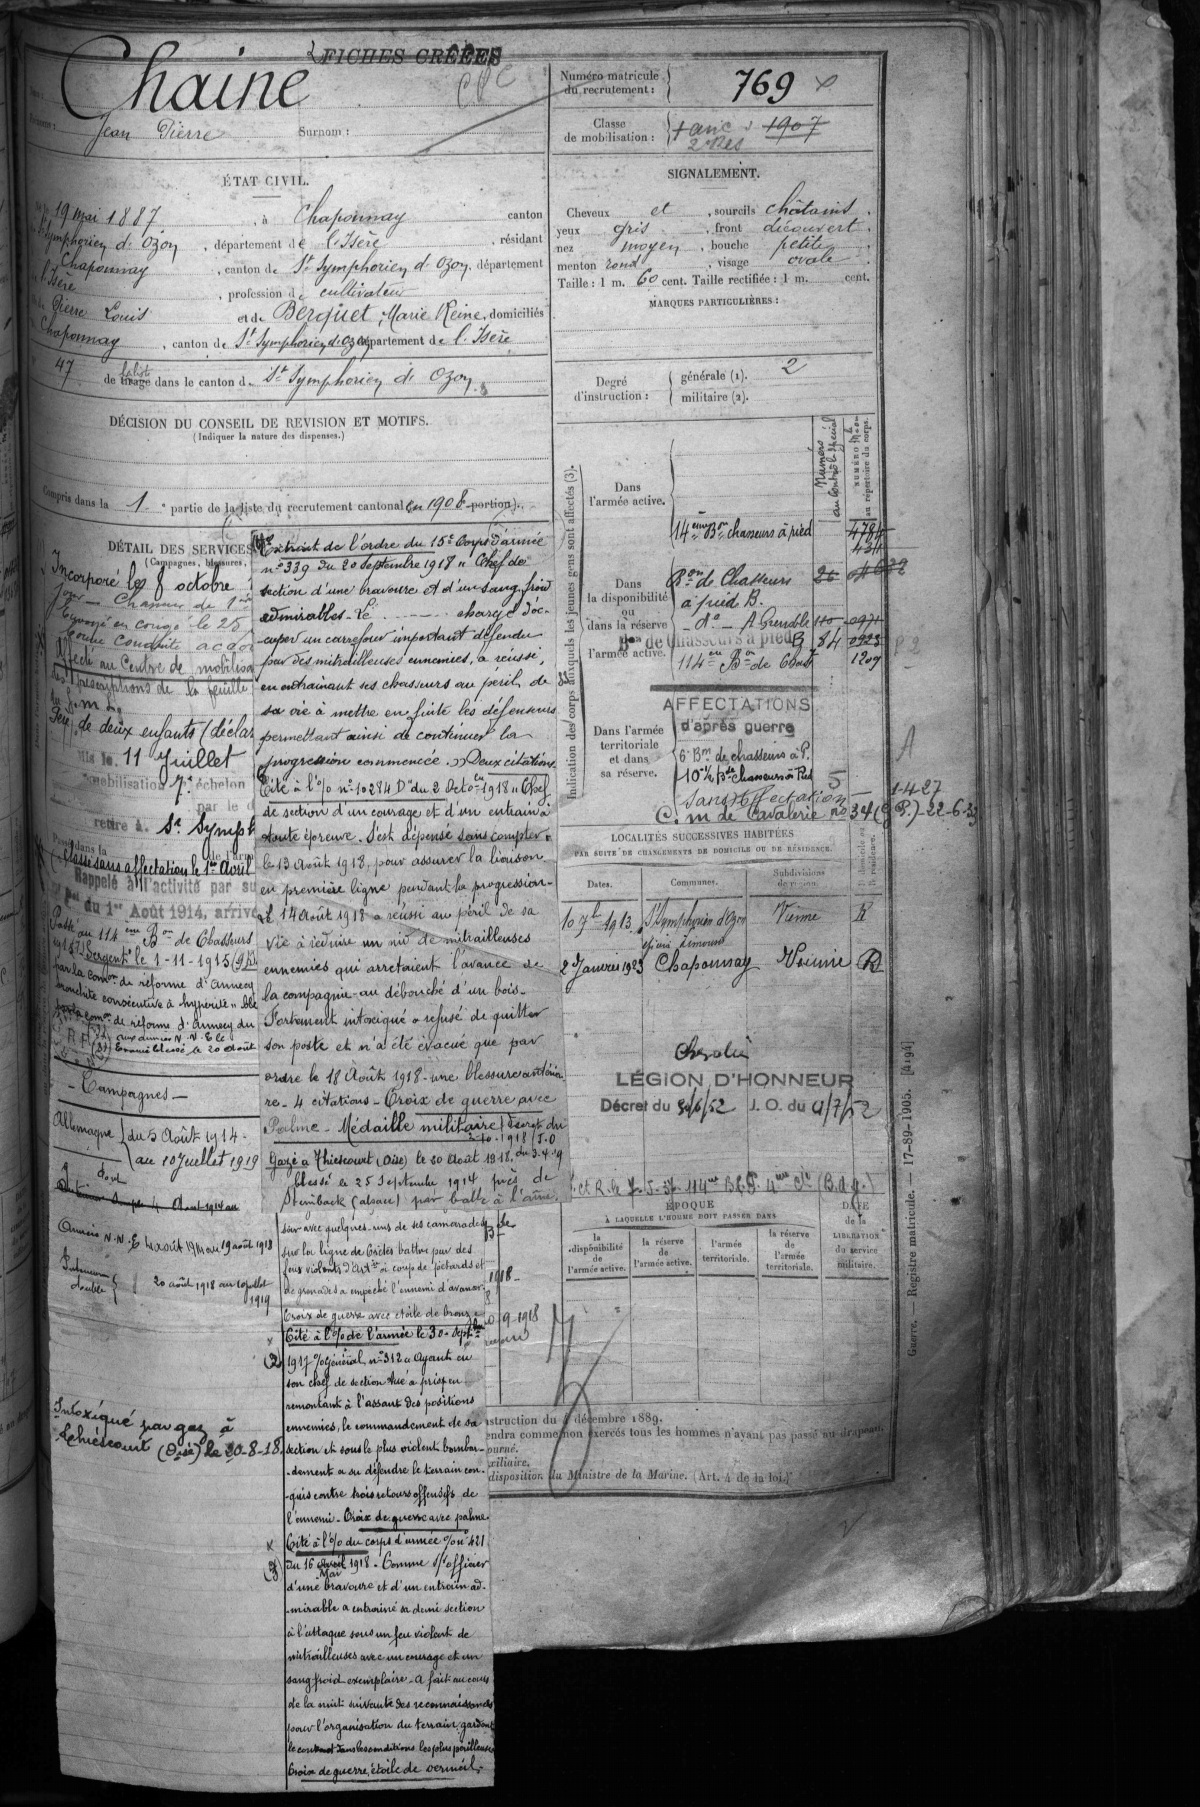 FICHES CRÉÉES
Chaine
Jean Pierre
Surnom :
ÉTAT CIVIL.
19 mai 1887, à Chaponnay canton
St Symphorien d'Ozon, département de l'Isère, résidant
Chaponnay, canton de St Symphorien d'Ozon, département
l'Isère, profession de cultivateur
Pierre Louis et de Berquet, Marie Reine, domiciliés
Chaponnay, canton de St Symphorien d'Ozon département de l'Isère
47 de la liste tirage dans le canton de St Symphorien d'Ozon
DÉCISION DU CONSEIL DE REVISION ET MOTIFS.
(Indiquer la nature des dispenses.)
Compris dans la 1e partie de la liste du recrutement cantonal (en 1908 portion).
DÉTAIL DES SERVICES
(Campagnes, blessures,
Incorporé le 8 octobre
Envoyé en congé le 25
bonne conduite acco
Affecté au Centre de mobilisa
les prescriptions de la feuille
Père de deux enfants (déclar
le 11 Juillet
mobilisation 7e échelon
par le d
retiré à St Symph
Classé sans affectation le 1er Avril
Rappelé à l'activité par su
du 1er Août 1914, arrivé
Passé au 114ème Bon de Chasseurs
Sergent le 1-11-1915
par la comon de réforme d'Annecy
bronchite consécutive à hypérité
par la comon de réforme d'Annecy du
aux armées N.N.E le
Evacué blessé le 20 Août
- Campagnes -
Allemagne du 5 Août 1914 -
au 10 Juillet 1919
dont
Armées N.N.E
Intérieur double 20 août 1918 au 10 juillet 1919
Intoxiqué par gaz à
Thiéscourt (Oise) le 20-8-18.
Extrait de l'ordre du 15e Corps d'armée
no 339 du 20 Septembre 1918 " Chef de
section d'une bravoure et d'un sang froid
admirables. Le - - - - - chargé d'oc-
cuper un carrefour important défendu
par des mitrailleuses ennemies, a réussi,
en entrainant ses chasseurs au péril de
sa vie à mettre en fuite les défenseurs
permettant ainsi de continuer la
progression commencée. » Deux citations
Cité à l'% no 10284 Dn du 2 Octobre 1918 " Chef
de section d'un courage et d'un entrain à
toute épreuve. S'est dépensé sans compter
le 13 Août 1918, pour assurer la liaison
en première ligne pendant la progression -
Le 14 Août 1918 a réussi au péril de sa
vie à réduire un nid de mitrailleuses
ennemies qui arretaient l'avance de
la compagnie au débouché d'un bois -
Fortement intoxiqué a refusé de quitter
son poste et n'a été évacué que par
ordre le 18 Août 1918 - une blessure antérieu-
re - 4 citations - Croix de guerre avec
Palme - Médaille militaire (Décret du
-10-1918 (J.O
du 3.4.19
Gazé à Thiescourt (Oise) le 20 Août 1918.
blessé le 25 Septembre 1914 près de
Steinback (alsace) par balle à l'aine
soir avec quelques-uns de ses camarades
sur la ligne de Crètes battue par des
feux violents d'Artie à coups de pétards et
de grenades a empeché l'ennemi d'avancer
Croix de guerre avec étoile de bronze
Cité à l'% de l'armée le 30 Septbre
(2) 1917 % Général no 312 " Ayant eu
son chef de section tué a pris en
remontant à l'assaut des positions
ennemies, le commandement de sa
section et sous le plus violent bombar-
-dement a su défendre le terrain con-
-quis contre trois retours offensifs de
l'ennemi - Croix de guerre avec palme
Cité à l'% du corps d'armée % no 421
(3) du 16 Avril Mai 1918 - Comme s/officier
d'une bravoure et d'un entrain ad-
-mirable a entrainé sa demi section
à l'attaque sous un feu violent de
mitrailleuses avec un courage et un
sang froid exemplaire - A fait au cours
de la nuit suivante des reconnaissances
pour l'organisation du terrain, gardant
le contact dans les conditions les plus périlleuses
Croix de guerre, étoile de vermeil -
Numéro matricule du recrutement : 769
Classe de mobilisation : 1907
SIGNALEMENT.
Cheveux et, sourcils châtains.
yeux gris, front découvert.
nez moyen, bouche petite
menton rond, visage ovale
Taille : 1 m. 60 cent. Taille rectifiée : 1 m. cent.
MARQUES PARTICULIÈRES :
Degré d'instruction : générale (1). 2
militaire (2).
Indication des corps auxquels les jeunes gens sont affectés (3).
Numéro au contrôle spécial
NUMÉRO au répertoire du corps.
Dans l'armée active.
14ème Bon chasseurs à pied 4784
Dans la disponibilité ou dans la réserve de l'armée active.
Bon de Chasseurs 26
à pied B.
- do - A Grenoble 110 0971
Bon de Chasseurs à pied B 84 0923
114eme Bon de Chas 1209
AFFECTATIONS
d'après guerre
Dans l'armée territoriale et dans sa réserve.
6e Bon de chasseurs à P.
10e 1/2 Be Chasseurs à Pied 5
(Sans) affectation - 1-4-27
C. m de Cavalerie no 34
LOCALITÉS SUCCESSIVES HABITÉES
PAR SUITE DE CHANGEMENTS DE DOMICILE OU DE RÉSIDENCE.
Dates. Communes. Subdivisions de région. D. domicile ou R. résidence.
10 7b 1913. St Symphorien d'Ozon Vienne R
2 Janvier 1923 Chaponnay Vienne R
Chevalier
LÉGION D'HONNEUR
Décret du 30/6/52 J. O. du 4/7/52
ÉPOQUE
À LAQUELLE L'HOMME DOIT PASSER DANS
la disponibilité de l'armée active.
la réserve de l'armée active.
l'armée territoriale.
la réserve de l'armée territoriale.
DATE de la LIBÉRATION du service militaire.
9-1918
nstruction du 4 décembre 1889.
endra comme non exercés tous les hommes n'ayant pas passé au drapeau.
journé.
xiliaire.
disposition du Ministre de la Marine. (Art. 4 de la loi.)
Guerre. Registre matricule. — 17-89-1905. [4194]